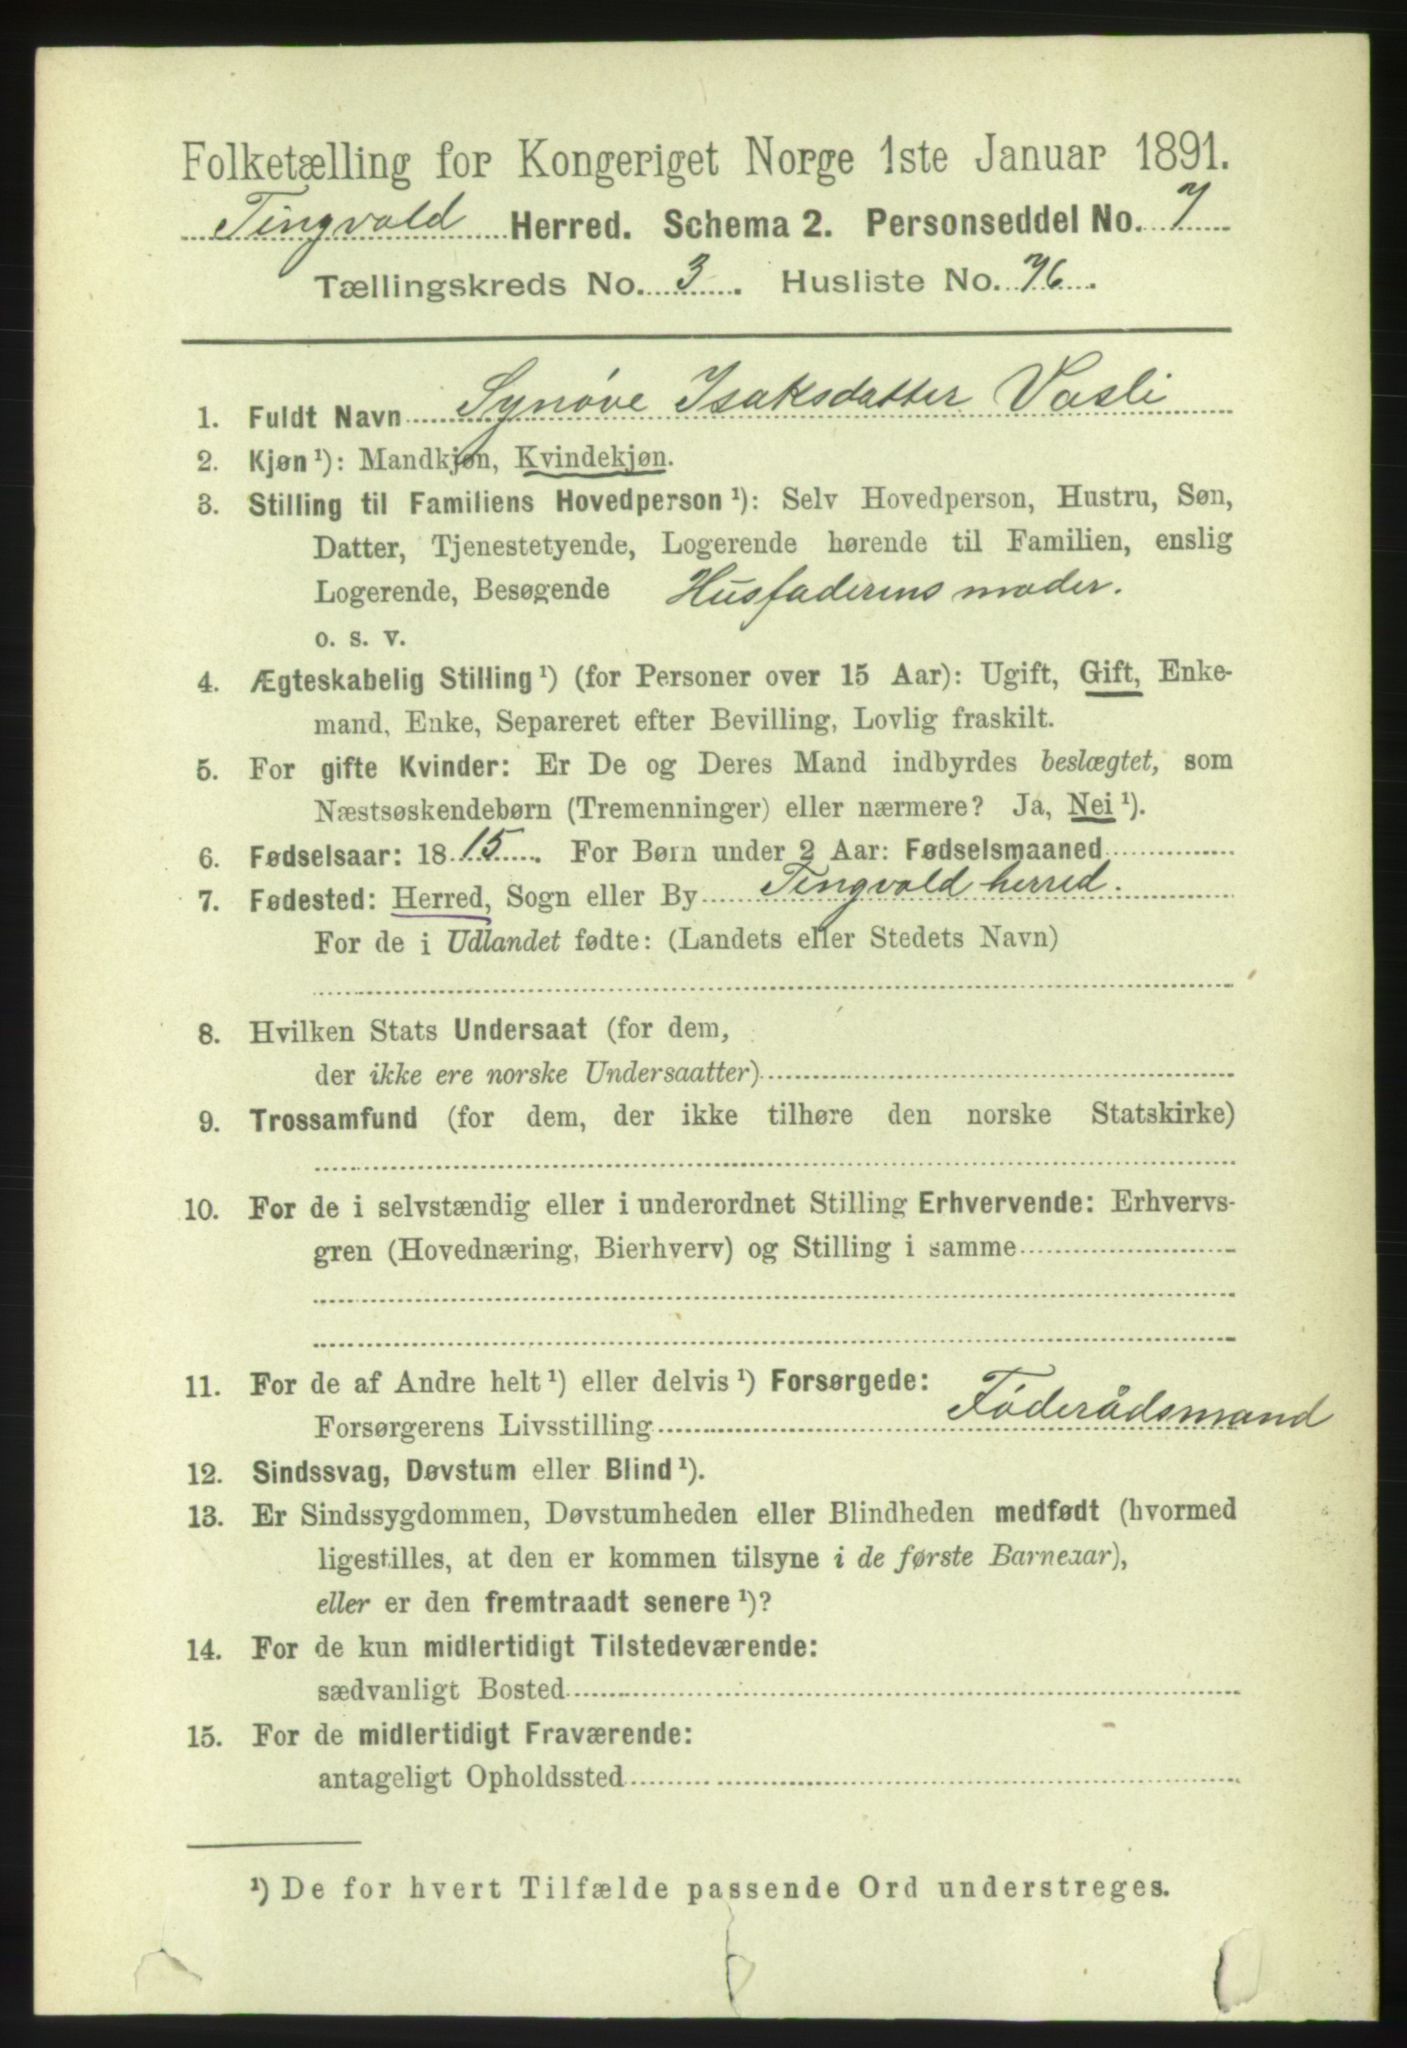 Folketælling for Kongeriget Norge 1ste Januar 1891.
Tingvold Herred. Schema 2. Personseddel No. 7
Tællingskreds No. 3. Husliste No. 76.
1. Fuldt Navn Synøve Isaksdatter Vasli
2. Kjøn ¹): Mandkjøn, Kvindekjøn.
3. Stilling til Familiens Hovedperson ¹): Selv Hovedperson, Hustru, Søn,
Datter, Tjenestetyende, Logerende hørende til Familien, enslig
Logerende, Besøgende Husfaderens moder.
o. s. v.
4. Ægteskabelig Stilling ¹) (for Personer over 15 Aar): Ugift, Gift, Enke-
mand, Enke, Separeret efter Bevilling, Lovlig fraskilt.
5. For gifte Kvinder: Er De og Deres Mand indbyrdes beslægtet, som
Næstsøskendebørn (Tremenninger) eller nærmere? Ja, Nei ¹).
6. Fødselsaar: 1815. For Børn under 2 Aar: Fødselsmaaned
7. Fødested: Herred, Sogn eller By Tingvold herred.
For de i Udlandet fødte: (Landets eller Stedets Navn)
8. Hvilken Stats Undersaat (for dem,
der ikke ere norske Undersaatter)
9. Trossamfund (for dem, der ikke tilhøre den norske Statskirke)
10. For de i selvstændig eller i underordnet Stilling Erhvervende: Erhvervs-
gren (Hovednæring, Bierhverv) og Stilling i samme
11. For de af Andre helt ¹) eller delvis ¹) Forsørgede:
Forsørgerens Livsstilling Föderådsmand
12. Sindssvag, Døvstum eller Blind ¹).
13. Er Sindssygdommen, Døvstumheden eller Blindheden medfødt (hvormed
ligestilles, at den er kommen tilsyne i de første Barneaar),
eller er den fremtraadt senere ¹)?
14. For de kun midlertidigt Tilstedeværende:
sædvanligt Bosted
15. For de midlertidigt Fraværende:
antageligt Opholdssted
¹) De for hvert Tilfælde passende Ord understreges.